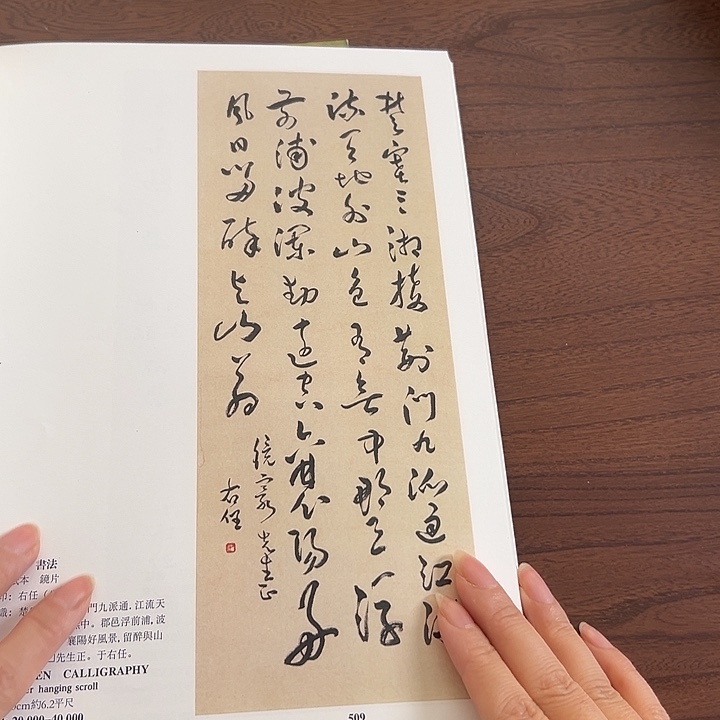 楚塞三湘接荊門九派通江
流天地外山色有無中郡邑浮
前浦波瀾動遠空襄陽好
風日留醉與山翁
鏡 先生正
右任
書法
紙本 鏡片
印: 右任
識: 楚 門九派通. 江流天
中. 郡邑浮前浦, 波
襄陽好風景, 留醉與山
先生正。于右任.
CALLIGRAPHY
hanging scroll
cm約6.2平尺
20,000-40,000
509